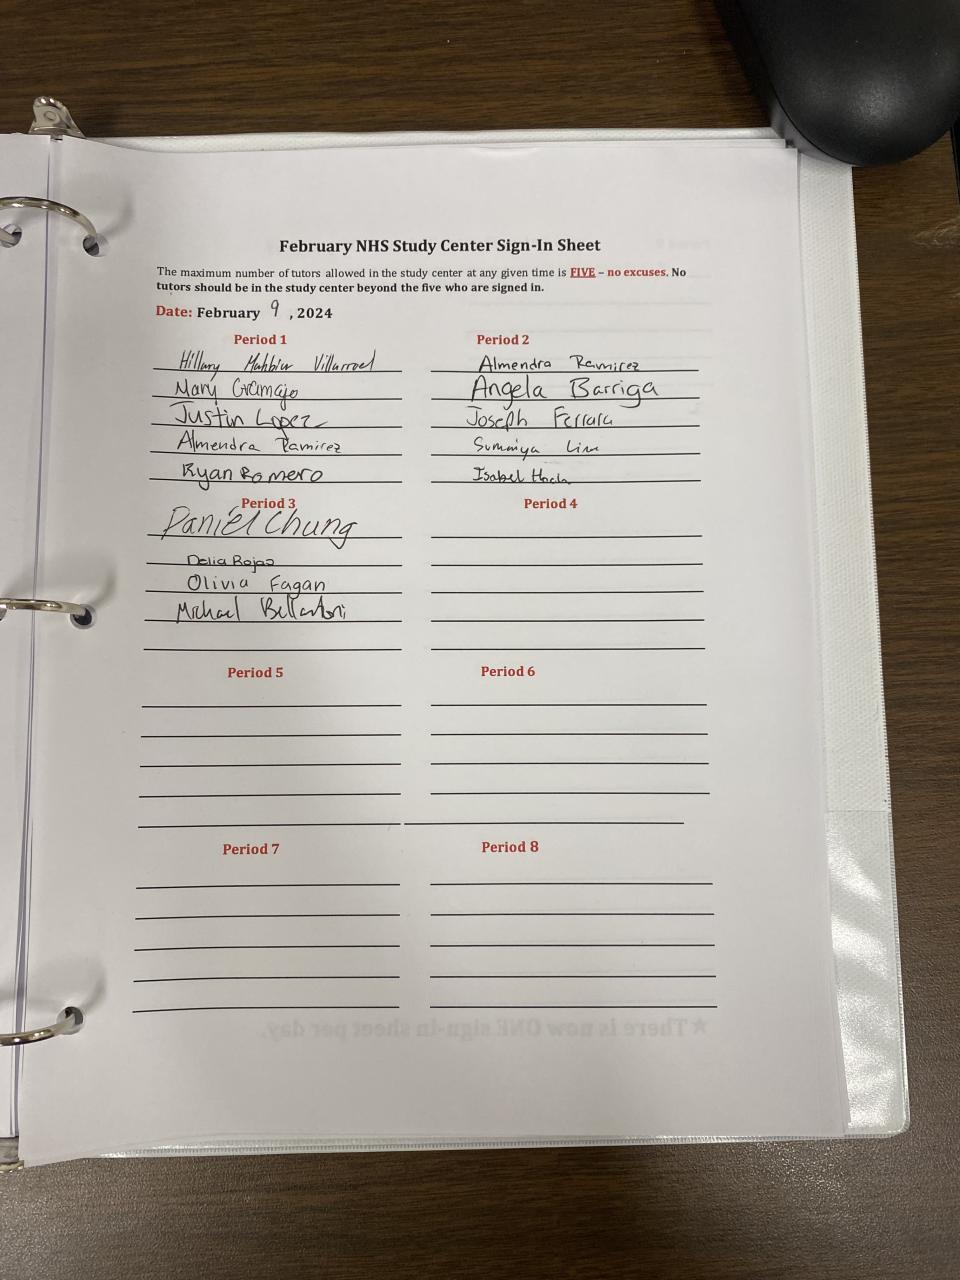 February NHS Study Center Sign-In Sheet
The maximum number of tutors allowed in the study center at any given time is FIVE – no excuses. No
tutors should be in the study center beyond the five who are signed in.
Date: February 9, 2024
Period 1
Hillary Villarroel
Mary Gramajo
Justin Lopez
Almendra Ramirez
Ryan Romero
Period 2
Almendra Ramirez
Angela Barriga
Joseph Ferrara
Lim
Isabel
Period 3
Daniel Chung
Delia Rojas
Olivia Fagan
Michael Bellantoni
Period 4
Period 5
Period 6
Period 7
Period 8
★ There is now ONE sign-in sheet per day.